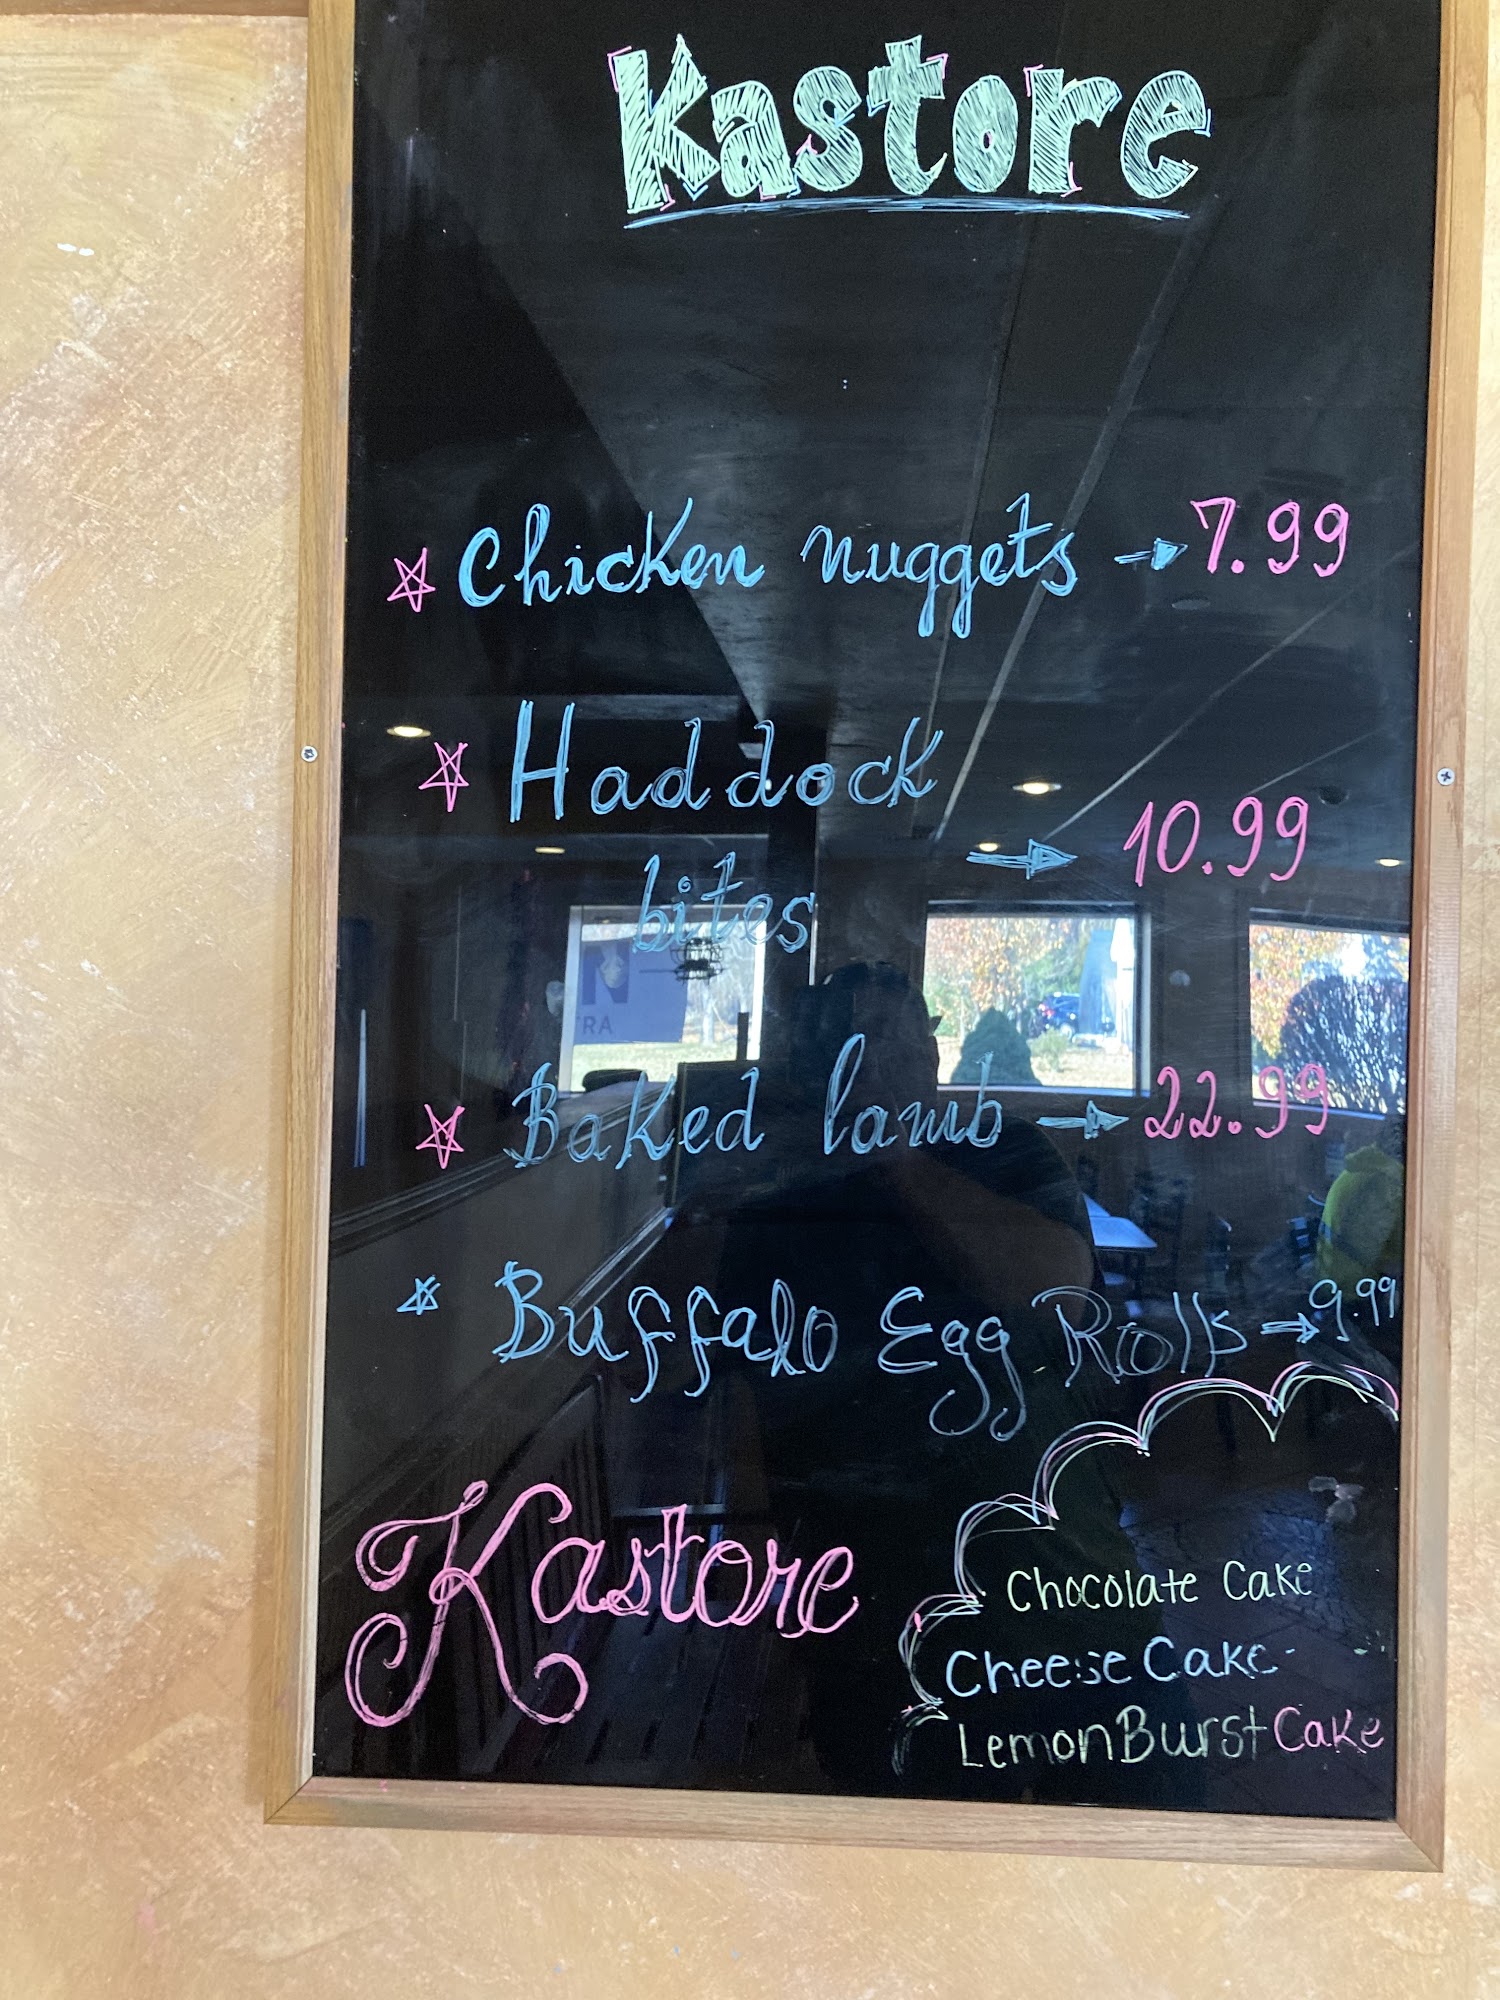 Kastore
Chicken nuggets → 7.99
Haddock
bites → 10.99
Baked lamb → 22.99
Buffalo Egg Rolls → 9.99
Kastore
Chocolate Cake
Cheese Cake
Lemon Burst Cake